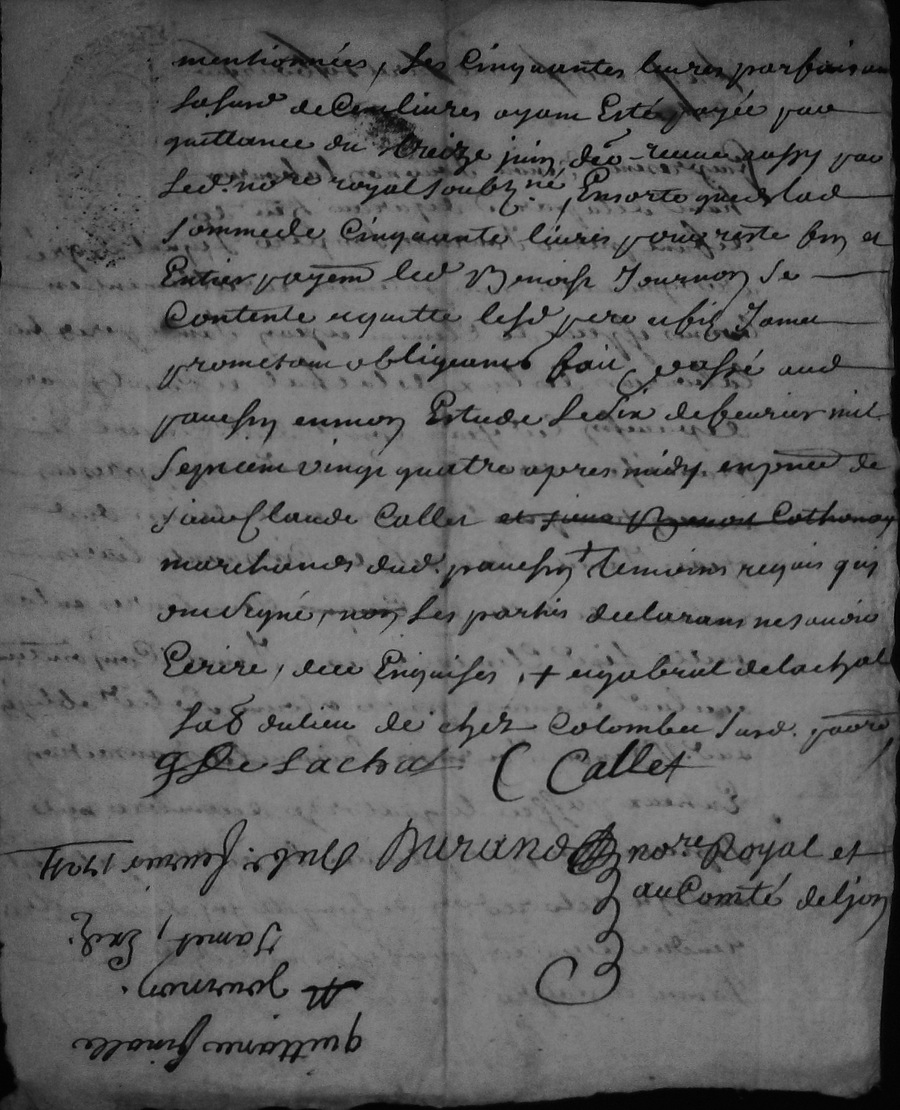 mentionnées, Les Cinquantes livres parfaisant
La susd de Cent livres ayant Esté payée par
quittance du treize juin
Led. no.re royal soubzné, Ensorte que de lad
somme de Cinquante livres pour reste fin et
Entier payem led Benoist Journon se
Contente et quitte lesd pere et fils Jamet
prometant obligeants fait et passé aud
en mon Estude Le six de feuvrier mil
Sept cent vingt quatre apres midy en pnce de
sieur Claude Callet et sieur Benoist Cathenay
marchands dud. temoins requis qui
ont signé, non Les parties declarans ne savoir
Ecrire, de ce Enquises, + et gabriel delachal
du lieu de chez Colombet susd.
g De Lachal C Callet
Durand no.re Royal et
au Comté de Lyon
quittance finalle
Journon
Jamet,
feuvrier 1724